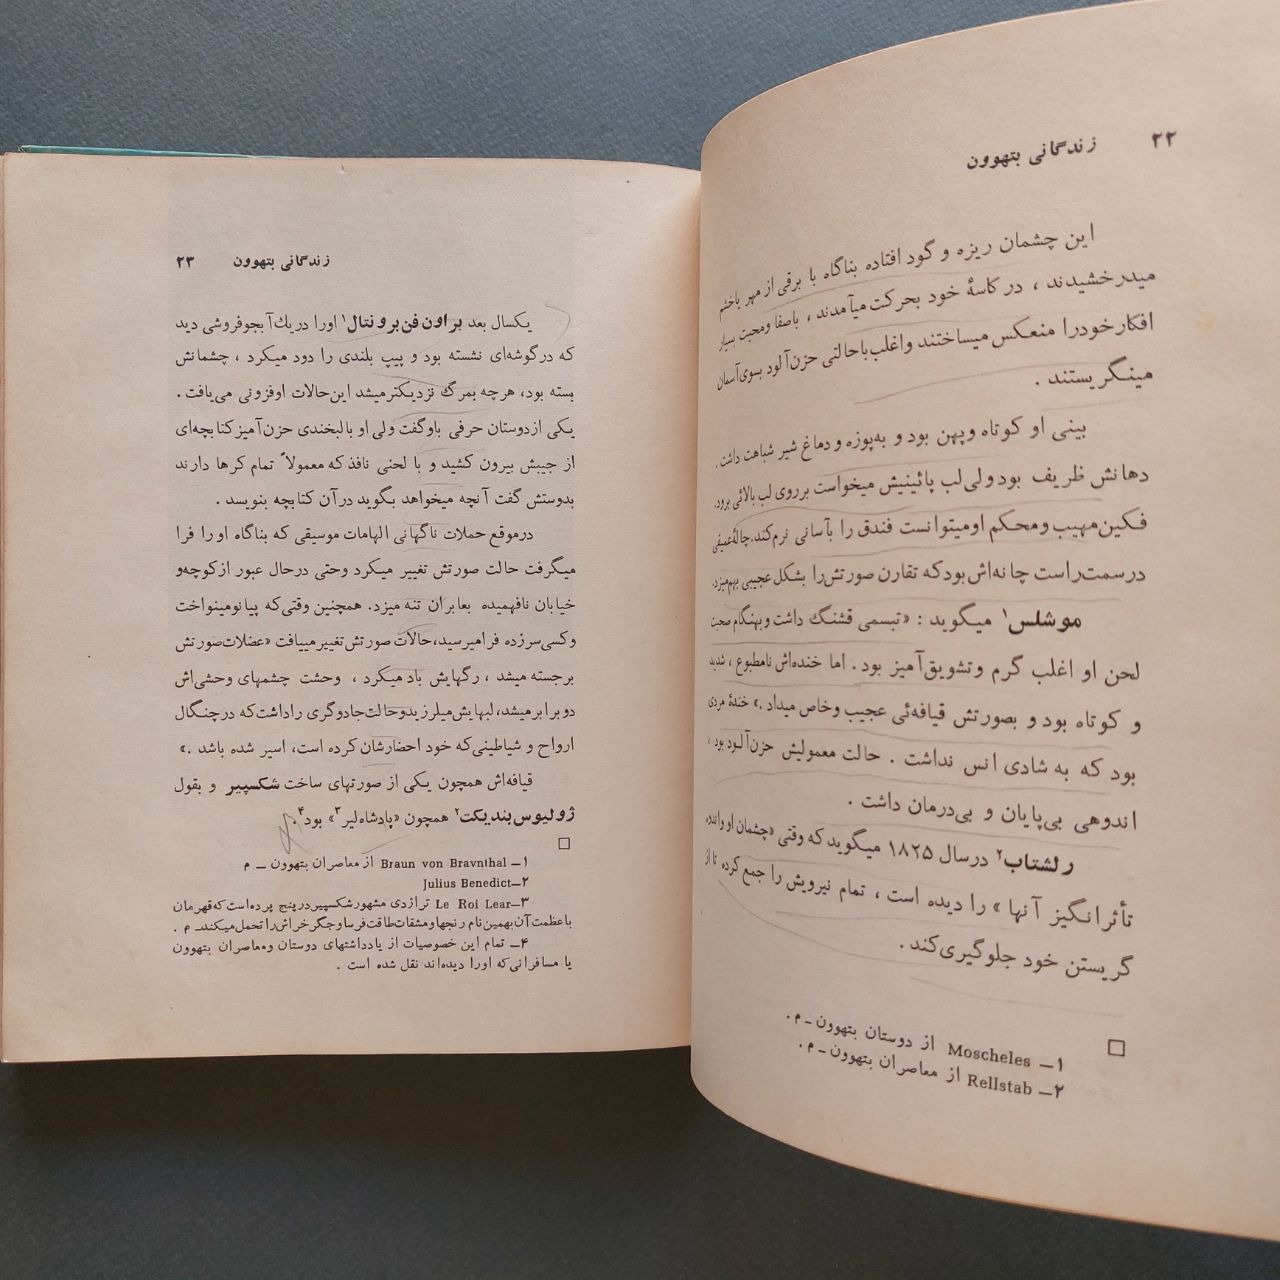 ۲۲ زندگانی بتهوون
این چشمان ریزه و گود افتاده بناگاه با برقی از مهر یاخشم
میدرخشیدند ، در کاسهٔ خود بحرکت میآمدند ، باصفا ومحبت بسیار
افکارخودرا منعکس میساختند واغلب باحالتی حزن‌آلود بسوی‌آسمان
مینگریستند .
بینی او کوتاه وپهن بود و به‌پوزه و دماغ شیر شباهت داشت .
دهانش ظریف بود ولی لب پائینیش میخواست برروی لب بالائی برود.
فکین مهیب ومحکم اومیتوانست فندق را بآسانی نرم کند. چالهٔ عمیقی
درسمت‌راست چانه‌اش بودکه تقارن صورتش را بشکل عجیبی بهم‌میزد.
موشلس۱ میگوید : «تبسمی قشنگ داشت وبهنگام صحبت
لحن او اغلب گرم وتشویق‌آمیز بود . اما خنده‌اش نامطبوع ، شدید
و کوتاه بود و بصورتش قیافه‌ئی عجیب وخاص میداد .» خندهٔ مردی
بود که به شادی انس نداشت . حالت معمولیش حزن‌آلود بود ،
اندوهی بی‌پایان و بی‌درمان داشت .
رلشتاب۲ درسال ۱۸۲۵ میگوید که وقتی «چشمان او واندوه
تأثرانگیز آنها» را دیده است ، تمام نیرویش را جمع کرده تا از
گریستن خود جلوگیری‌کند .
۱ـ Moscheles از دوستان بتهوون ـ م .
۲ـ Rellstab از معاصران بتهوون ـ م .
زندگانی بتهوون ۲۳
یکسال بعد براون فن برونتال۱ اورا دریك آبجوفروشی دید
که درگوشه‌ای نشسته بود و پیپ بلندی را دود میکرد ، چشمانش
بسته بود، هرچه بمرگ نزدیکترمیشد این‌حالات اوفزونی می‌یافت .
یکی ازدوستان حرفی باوگفت ولی او بالبخندی حزن‌آمیزکتابچه‌ای
از جیبش بیرون کشید و با لحنی نافذ که معمولاً تمام کرها دارند
بدوستش گفت آنچه میخواهد بگوید درآن کتابچه بنویسد .
درموقع حملات ناگهانی الهامات موسیقی که بناگاه اورا فرا
میگرفت حالت صورتش تغییر میکرد وحتی درحال عبور ازکوچه‌و
خیابان نافهمیده بعابران تنه میزد. همچنین وقتی‌که پیانومینواخت
وکسی‌سرزده فرامیرسید،حالات صورتش تغییرمییافت «عضلات‌صورتش
برجسته میشد ، رگهایش بادمیکرد ، وحشت چشمهای وحشی‌اش
دوبرابرمیشد، لبهایش‌میلرزیدوحالت‌جادوگری راداشت‌که درچنگال
ارواح و شیاطینی‌که خود احضارشان کرده است، اسیر شده باشد .»
قیافه‌اش همچون یکی از صورتهای ساخت شکسپیر و بقول
ژولیوس‌بندیکت۲ همچون «پادشاه‌لیر۳» بود۴.
۱ـ Braun von Bravnthal از معاصران بتهوون ـ م
۲ـ Julius Benedict
۳ـ Le Roi Lear تراژدی مشهورشکسپیردرپنج پرده‌است‌که‌قهرمان
باعظمت‌آن‌بهمین‌نام رنجهاومشقات‌طاقت‌فرساوجگرخراش‌راتحمل‌میکند ـ م .
۴ـ تمام این خصوصیات از یادداشتهای دوستان ومعاصران بتهوون
یا مسافرانی‌که اورا دیده‌اند نقل شده است .